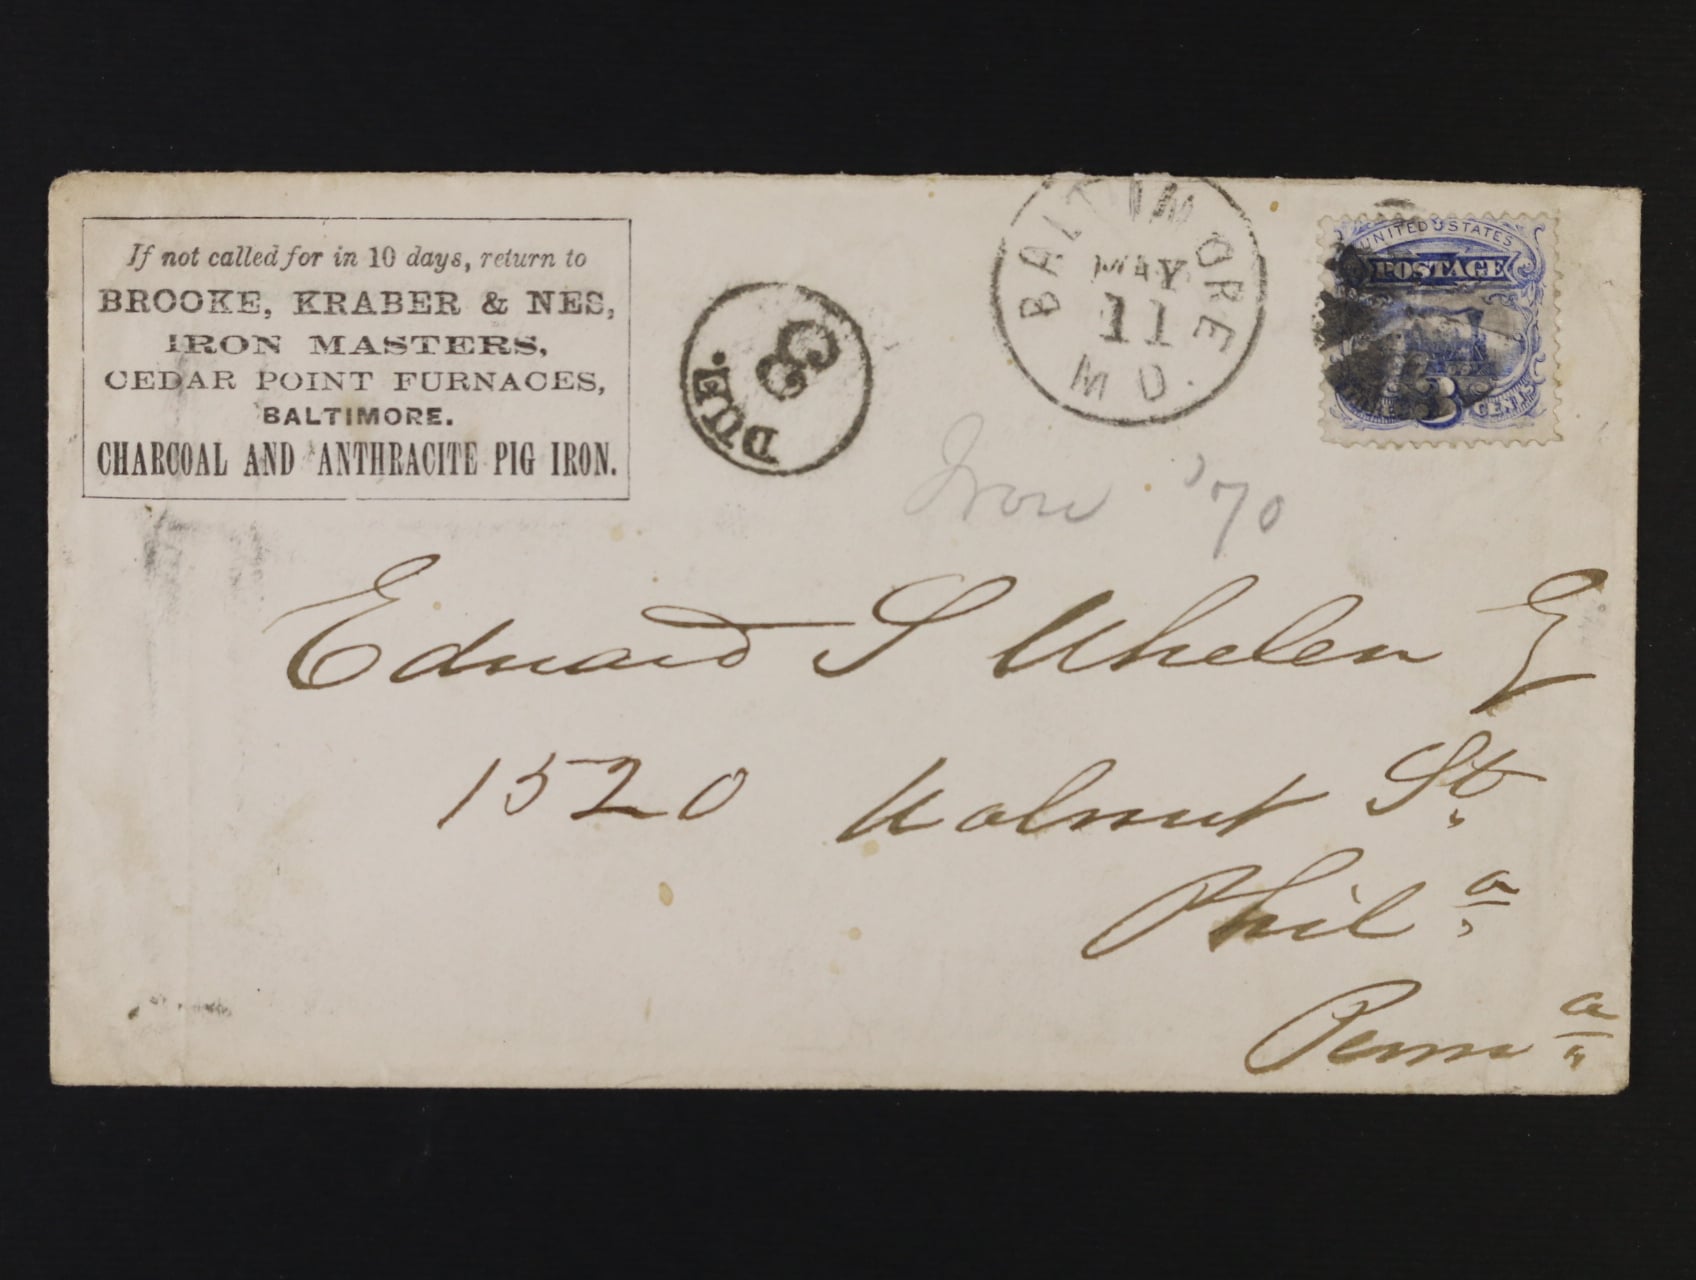 If not called for in 10 days, return to
BROOKE, KRABER & NES,
IRON MASTERS,
CEDAR POINT FURNACES,
BALTIMORE.
CHARCOAL AND ANTHRACITE PIG IRON.
DUE. 3
BALTIMORE
MAY
11
MD.
UNITED STATES
POSTAGE
3 CENTS
Iron '70
Edward S Whelen
1520 Walnut St.
Phila
Penna